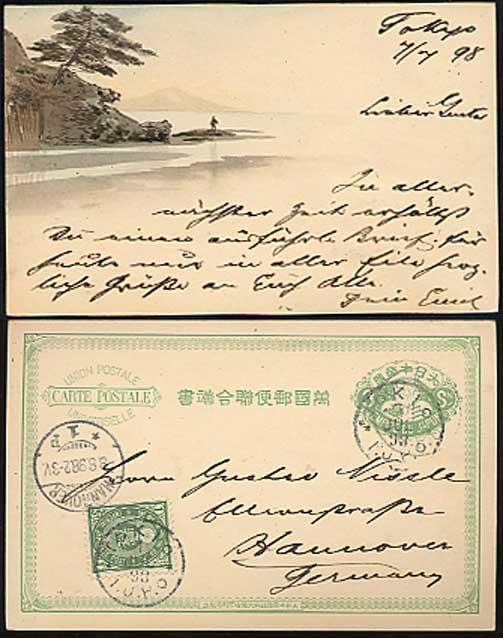 Tokyo
7/7 98
Lieber Gustav
In aller-
nächster Zeit erhältst
Du einen ausführl. Brief, für
heute nur in aller Eile herz-
liche Grüße an Euch Alle.
Dein Emil
UNION POSTALE
CARTE POSTALE
UNIVERSELLE
萬國郵便聯合端書
TOKIO
JUL
98
I.J.P.O.
HANNOVER
8.8.98.2-3V.
Herrn Gustav Nissle
Ellernstraße
Hannover
Germany